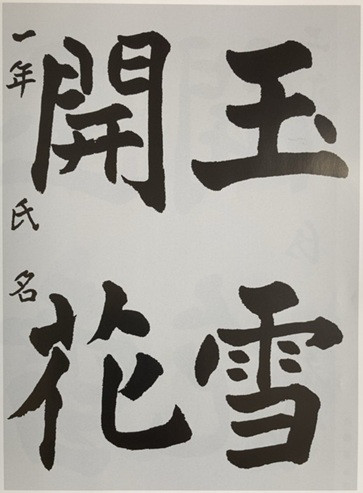 玉雪
開花
一年 氏名